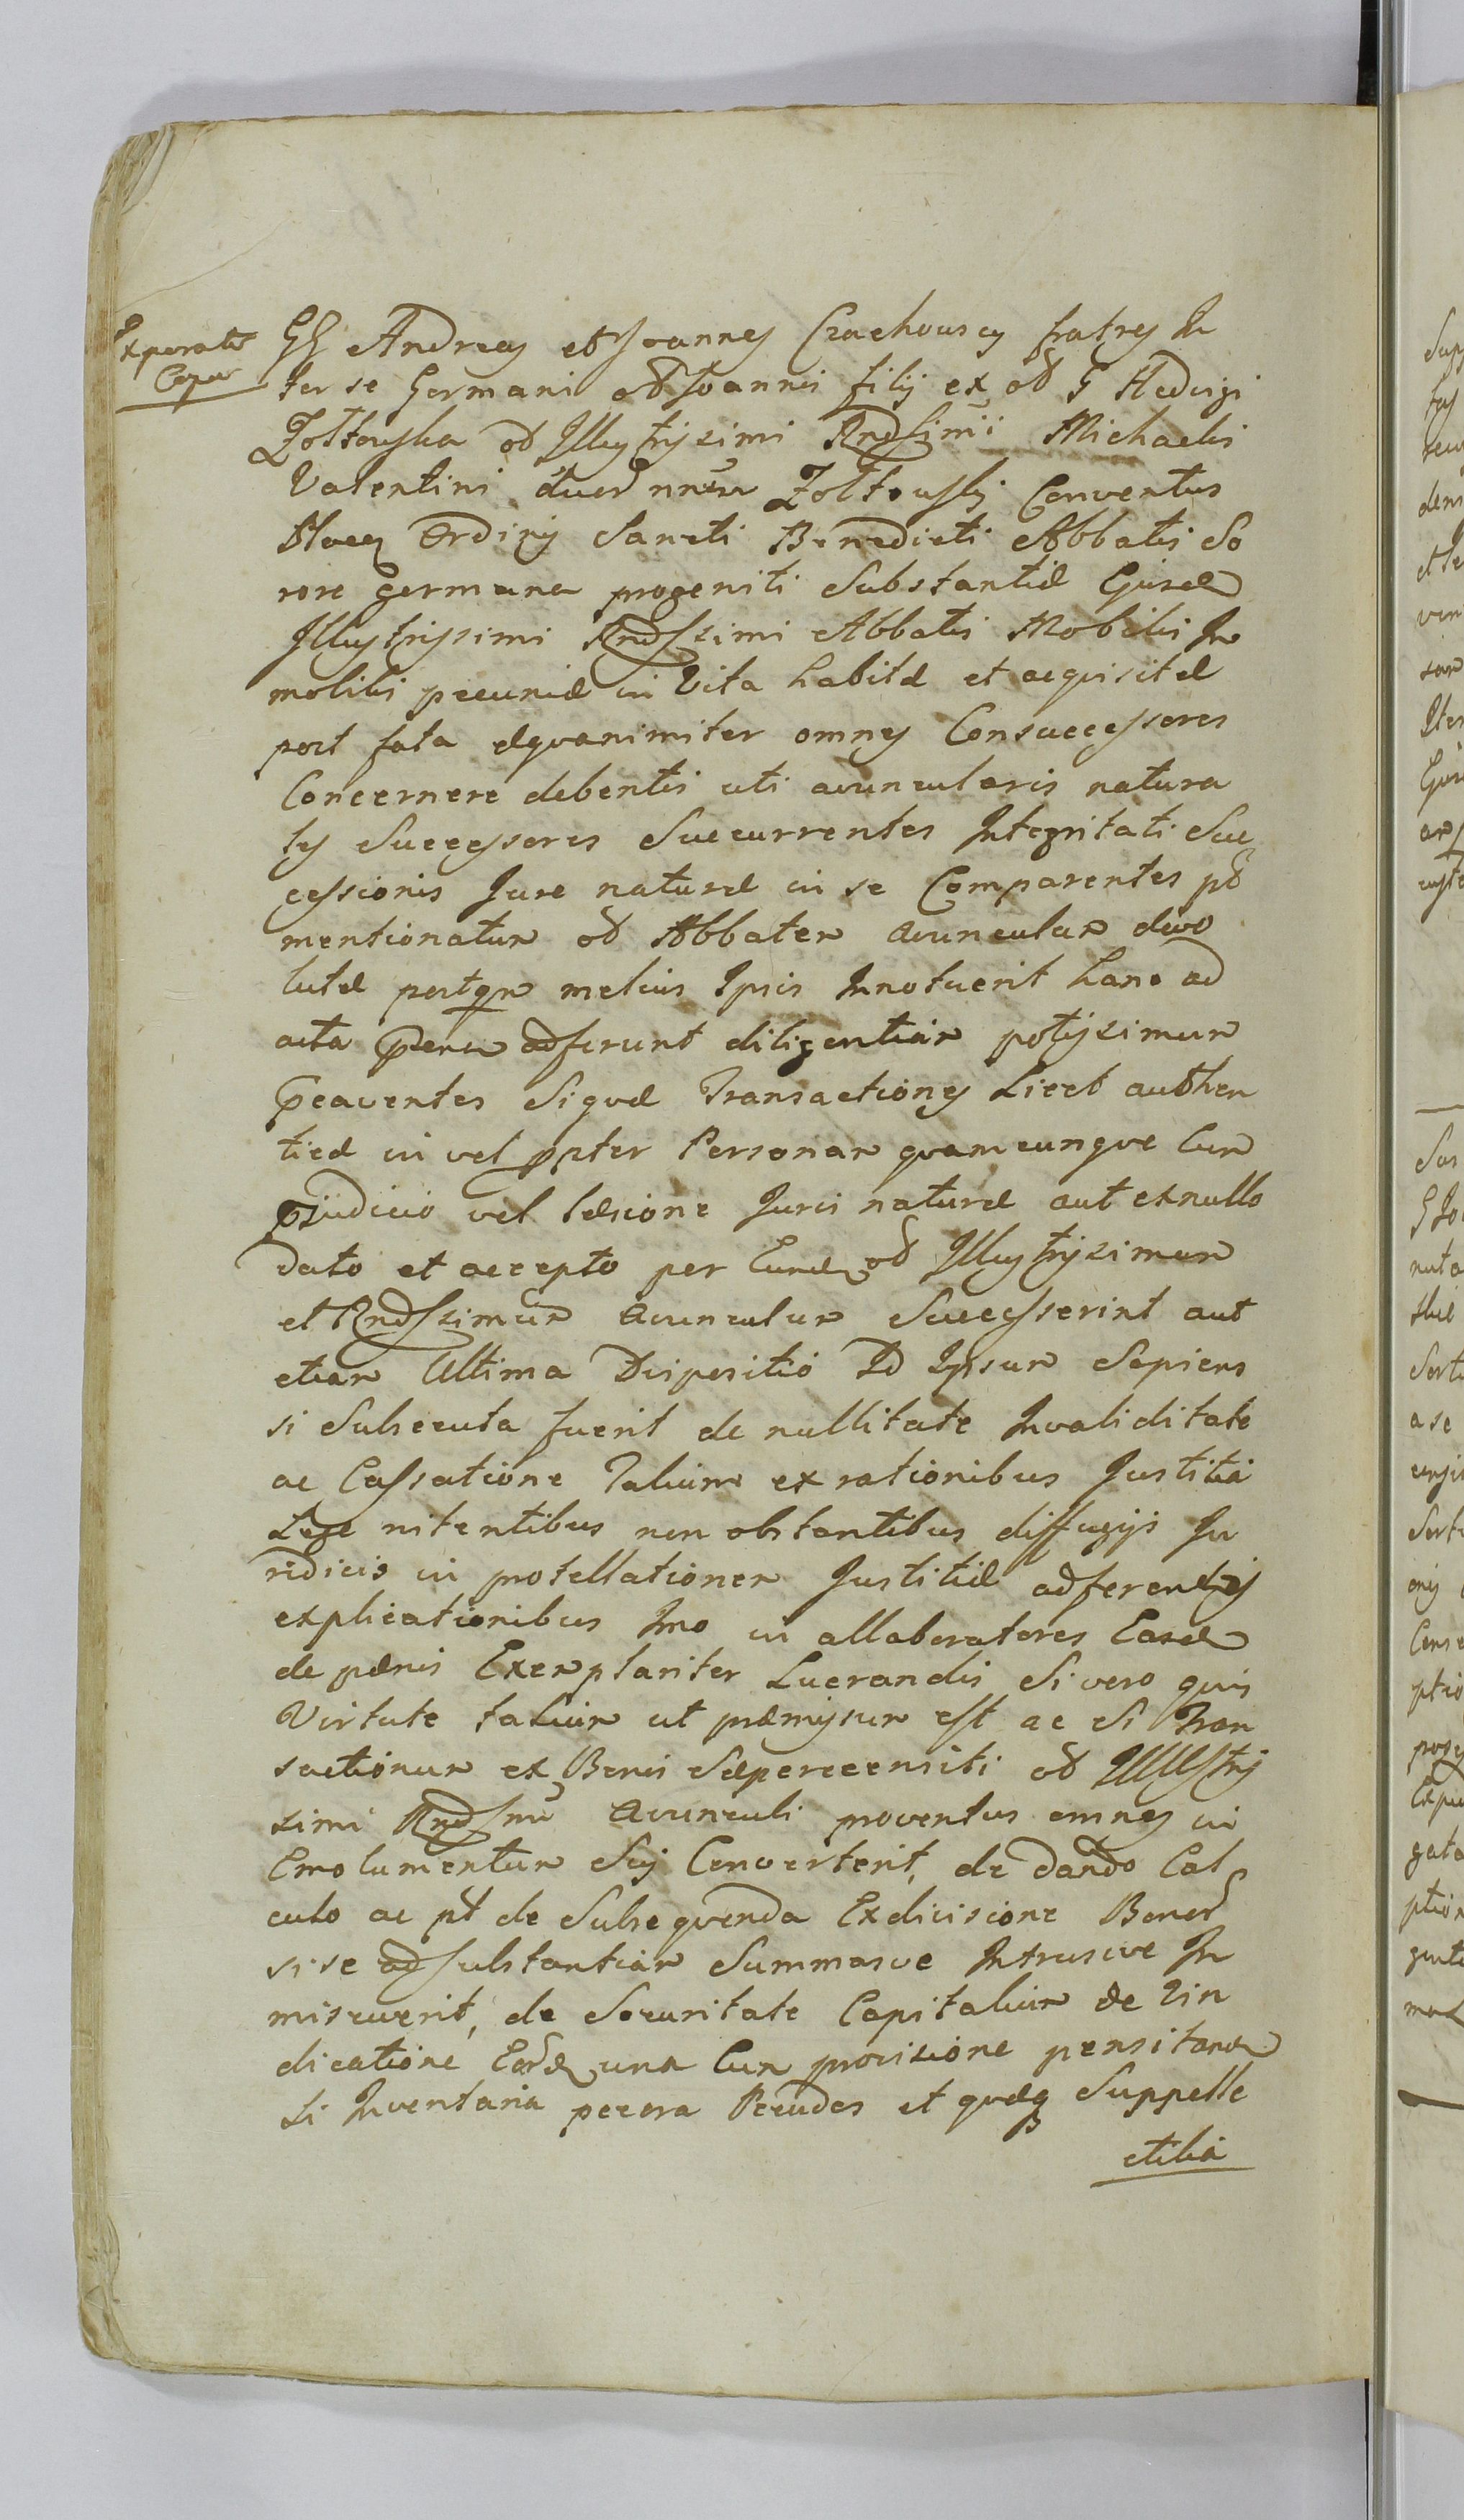 Exporat
Copia
GG Andreas et Joannes Czachowscy fratres In
ter se Germani od Joannis filij ex od G Hedvigi
Zołtowska od Illustrissimi Rndssimi Michaelis
Valentini duor nnum Zołtowskj Conventus
Ordinis Sancti Benedicti Abbatis So
rore germana progeniti Substantiæ Ejusdæ
Illustrissimi Rndssimi Abbatis Mobilis Im
mobilis pecuniæ in Vita habitæ et acquisitæ
post fata æquanimiter omnes Consuccessores
Concernere debentis uti avuncularis natura
les Successores Succurrentes Integritati Suc
cessionis Jure naturæ in se Comparentes pd
mentionatum od Abbatem avunculum devo
lutæ postqm melius Ipsis Innotuerit hanc ad
acta adferunt diligentiam potissimum
pcaventes Siquæ Transactiones Licet authen
ticæ in vel ppter Personam quamcunque Cum
pjudicio vel læsione Juris naturæ aut ex nullo
dato et accepto per Eund od Illustrissimum
et Rndssimum avunculum Successerint aut
etiam Ultima Dispositio Id Ipsum Sapiens
si Subsecuta fuerit de nullitate Invaliditate
ac Cassatione Talium ex rationibus Justitiâ
Lege nitentibus non obstantibus diffugijs Ju
ridicis in Justitiæ adferendis
explicationibus Imo in allaboratores Eard
de pænis Exemplariter Luerandis Si vero quis
Virtute talium ut præmissum est ac Si Tran
sactionum ex Bonis Sæperecensiti od Illustris
simi Rndsmi avunculi proventus omnes in
Emolumentum Sui Converterit, de dando Cal
culo ac pt de Subsequenda Exdivisione Bonor
si se ad substantiam Summasve Intrusive Im
miscuerit, de Securitate Capitalium de Vin
dicatione Eord una Cum provisione pensitand
si Inventaria pecora Pecudes et quæq Suppelle
ctilia